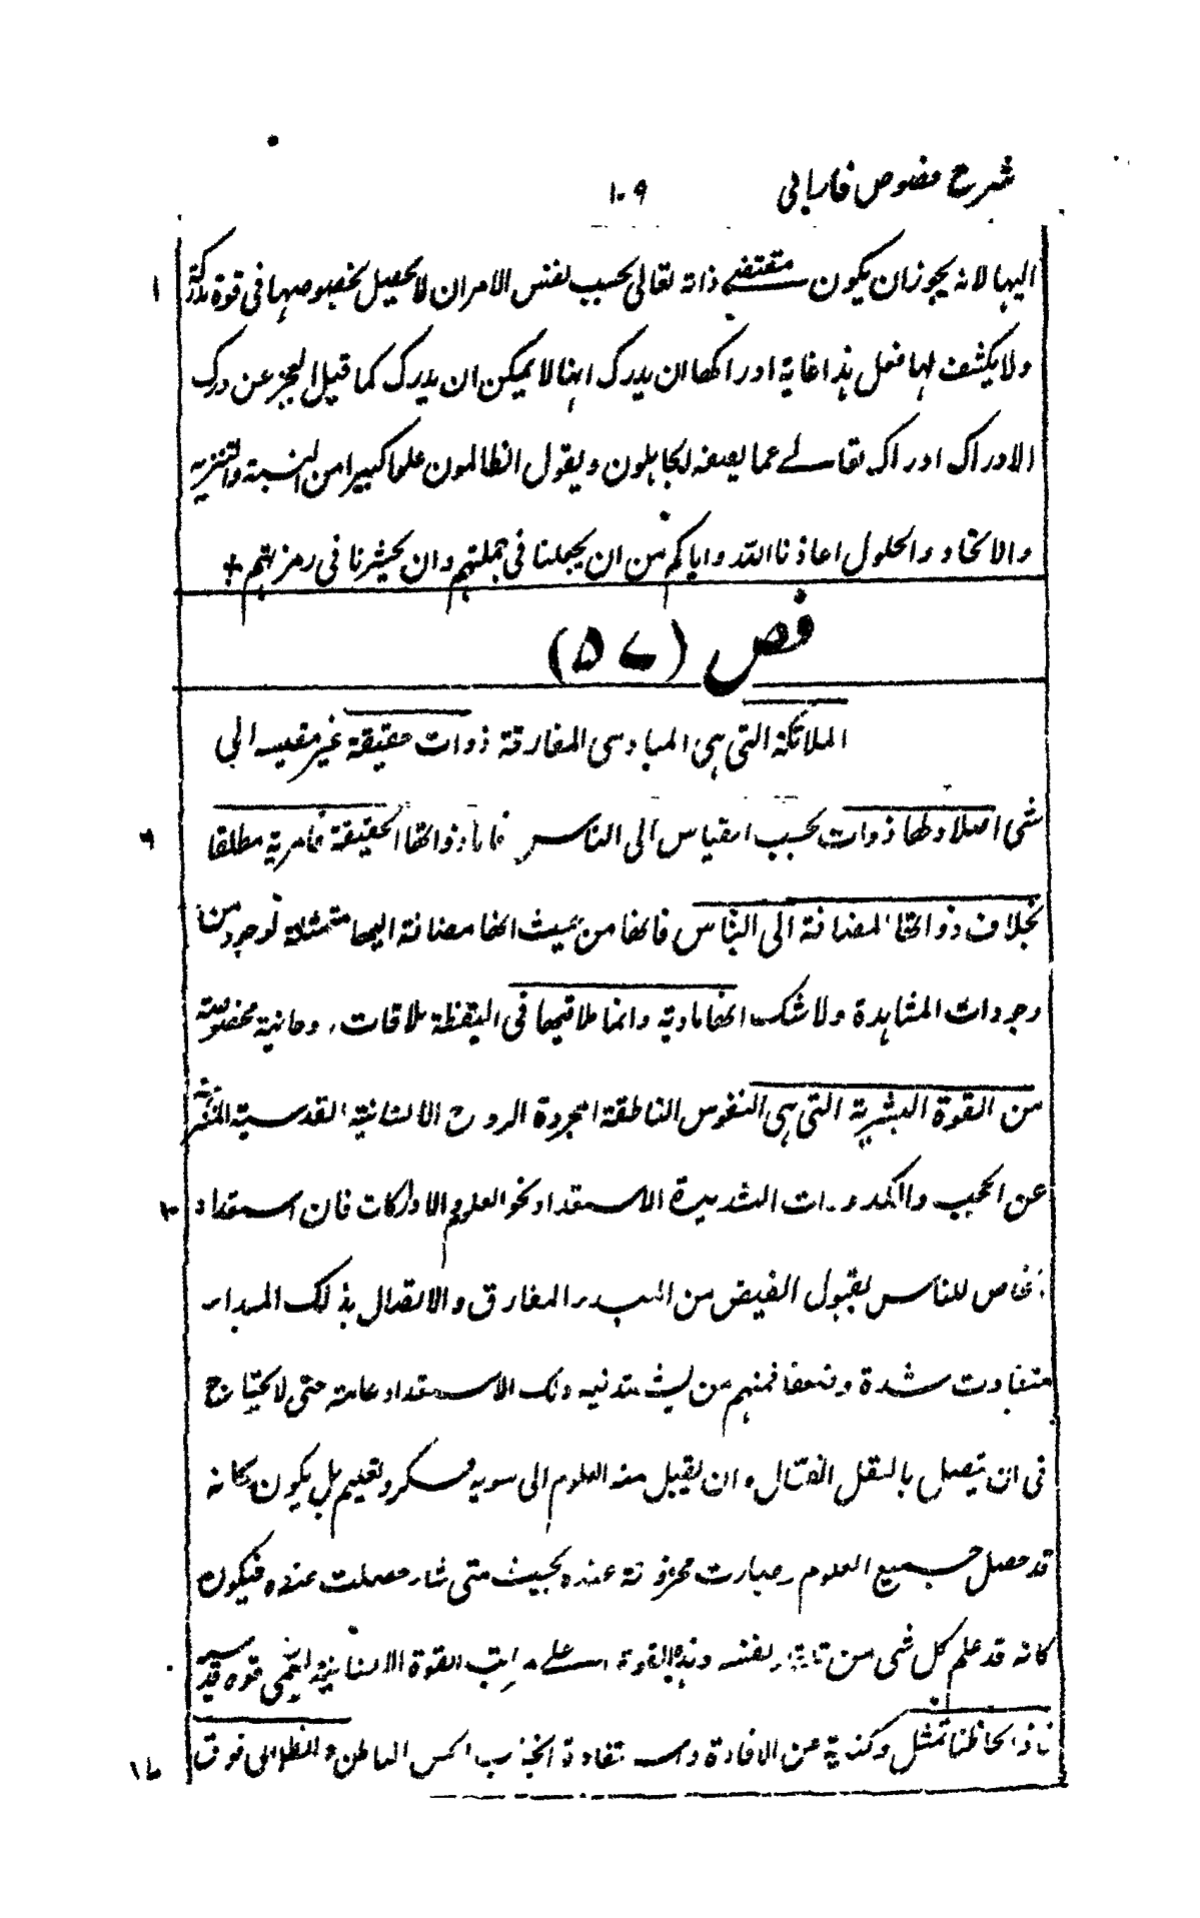 شرح فصوص فارابي ١٠٩
اليها لانه يجوز ان يكون مقتضى ذاته تعالى بحسب نفس الامران لا يحصل بخصوصها فى قوة مدركة ١
ولا يكشف لها فعل هذا غاية ادراكها ان يدرك انها لا يمكن ان يدرك كما قيل العجز عن درك
الادراك ادراك تعالى عما يصفه الجاهلون ويقول الظالمون علوا كبيرا من النسبة والتنزيه
والاتحاد والحلول اعاذنا الله واياكم من ان يجعلنا فى جملتهم وان يحشرنا فى زمرتهم +
فص (٥٧)
الملائكة التى هى المبادى المفارقة ذوات حقيقة غير مقيسه الى
شى اصلا ولها ذوات بحسب القياس الى الناس فاما ذواتها الحقيقة فامرية مطلقا ٦
بخلاف ذواتها المضافة الى الناس فانها من حيث انها مضافة اليها متمثلة توجد من
وجودات المشاهدة ولا شك انها مادية وانما ملاقيها فى اليقظة ملاقات روحانية مخصوصة
من القوة البشرية التى هى النفوس الناطقة المجردة الروح الانسانية القدسية
عن الحجب والكدورات الشديرة الاستعداد نحو العلوم الادراكات فان استعداد ١٠
خاص للناس بقبول الفيض من المبدء المفارق والاتصال بذلك المبداء
متفاوت شدة وضعفا فمنهم من يشتد فيه ذلك الاستعداد عامة حتى لا يحتاج
فى ان يتصل بالعقل الفعال وان يقبل منه العلوم الى سويه فكر وتعليم بل يكون كانه
قد حصل جميع العلوم وصارت مخزونة عنده بحيث متى شاء حصلت عنده فيكون
كانه قد علم كل شى من تلقاء نفسه وهذه القوة اعلى مراتب القوة الانسانية ليسمى قوه قدسية
فاذا خاطبنا تمثل وكندية عن الافادة والاستفادة انجذب الحس الباطن والظ الى فوق ١٦